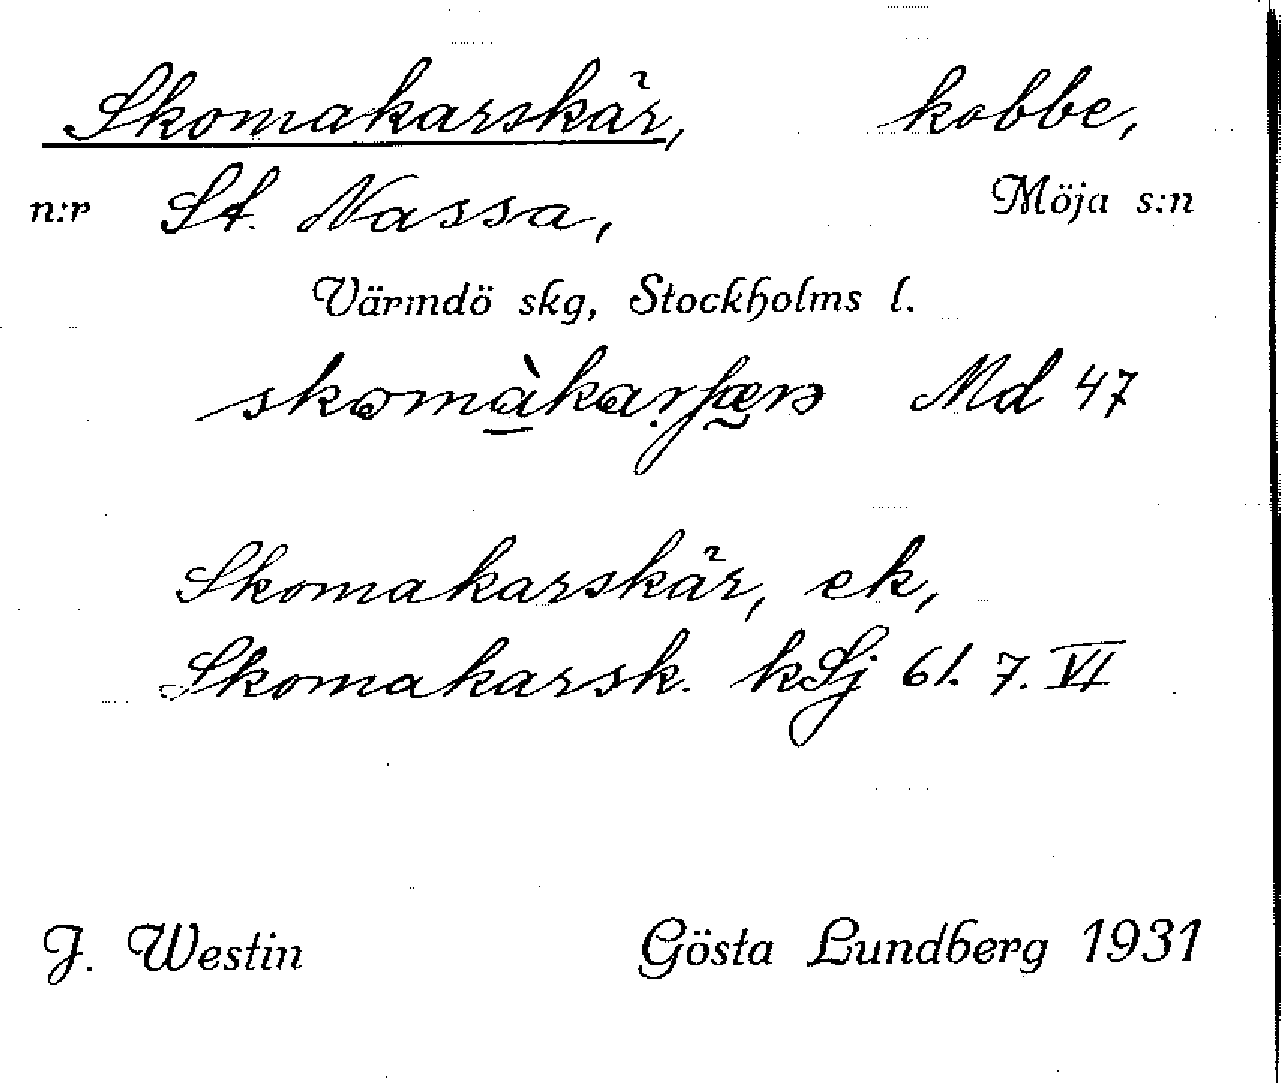 Skomakarskär, kobbe,
n:r St. Nassa, Möja s:n
Värmdö skg, Stockholms l.
Md 47
Skomakarskär, ek,
Skomakarsk. kSj 61. 7. VI
J. Westin Gösta Lundberg 1931